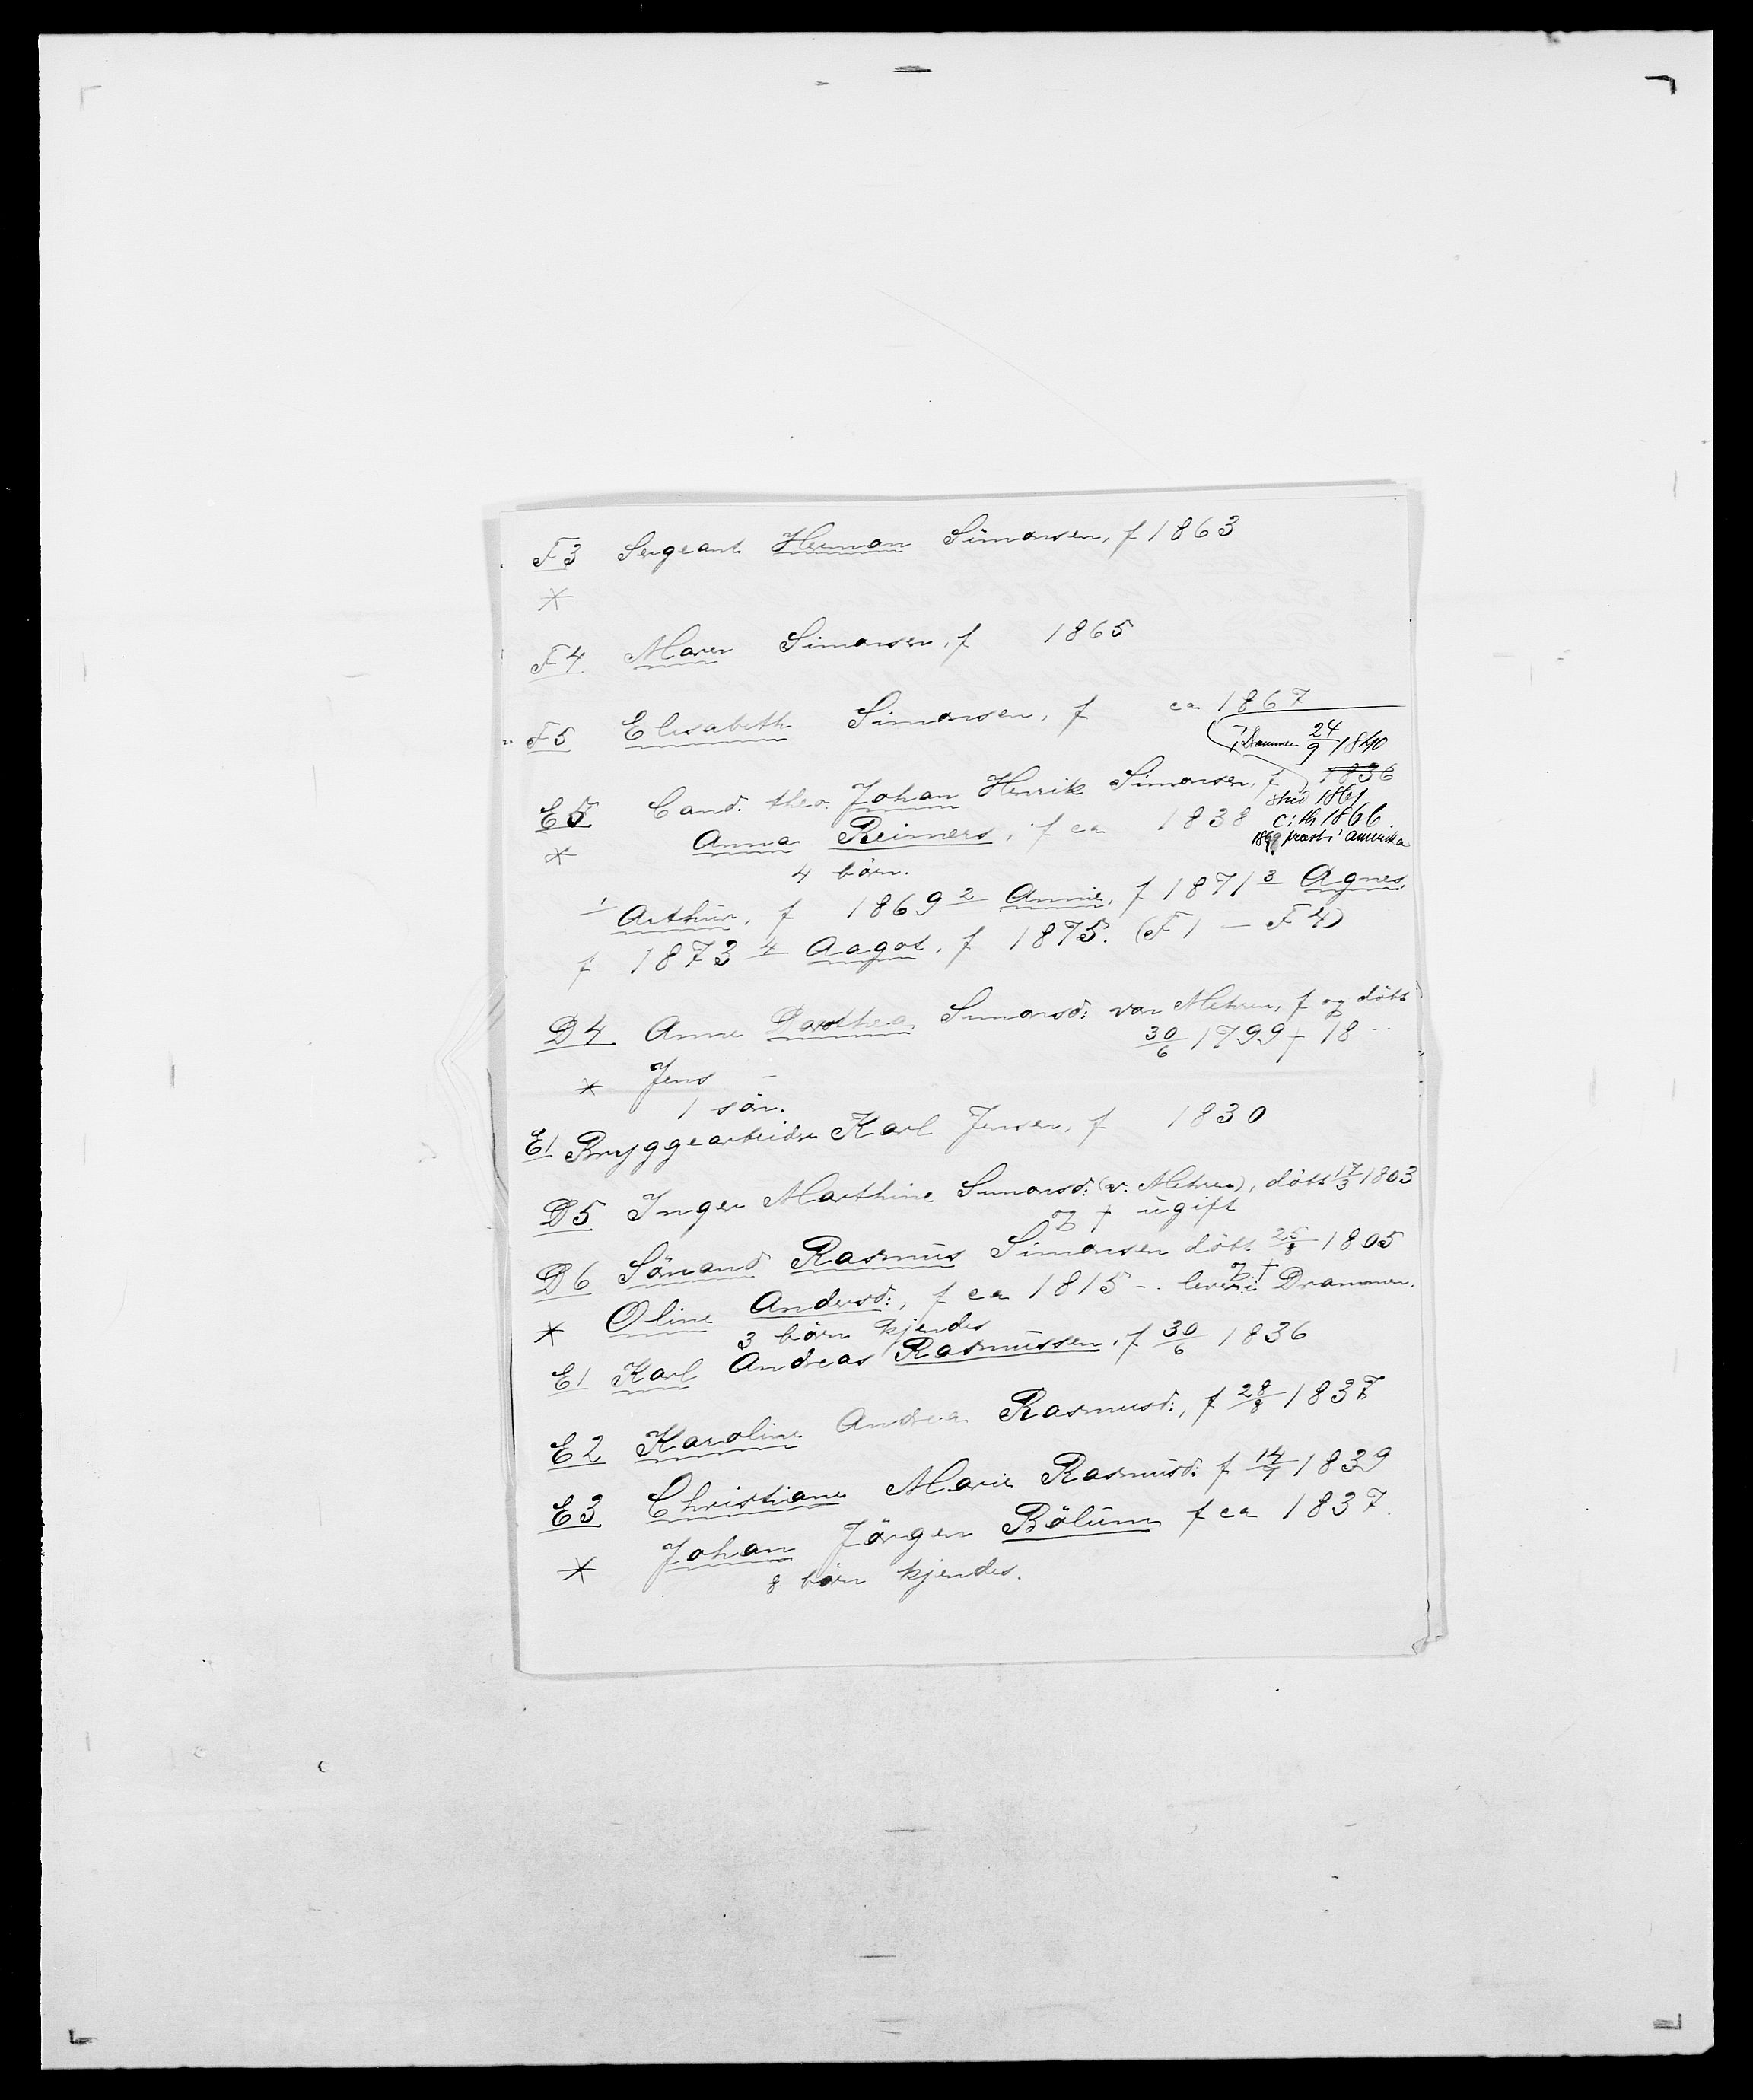 F3 Sergeant Herman Simonsen, f 1863
*
F4. Maren Simonsen, f 1865
F5 Elisabeth Simonsen, f ca 1867
i Drammen 24/9 1840
E5 Cand. theo. Johan Henrik Simonsen, f 1836
stud 1861
* Anna Reimers, f ca 1838 c: th 1866.
1869 præst i Amerika
4 børn.
1 Arthur, f 1869 2 Annie, f 1871 3 Agnes,
f 1873 4 Aagot, f 1875. (F1 — F4)
D4 Anne Dorthea Simonsd: von Mehren, f og döbt
30/6 1799 † 18 --
* Jens –
1 sön.
E1 Bryggearbeider Karl Jensen, f 1830
D5 Inger Marthine Simonsd: (v. Mehren), döbt 17/3 1803
og † ugift
D6 Sömand Rasmus Simonsen döbt 25/8 1805
og †
* Oline Andersd:, f ca 1815 -. lever i Drammen.
3 börn kjendes
E1 Karl Andreas Rasmussen, f 30/6 1836
E2 Karoline Andrea Rasmusd:, f 28/8 1837
E3 Christiane Marie Rasmusd: f 14/7 1839
* Johan Jörgen Bölum f ca 1837.
8 börn kjendes.